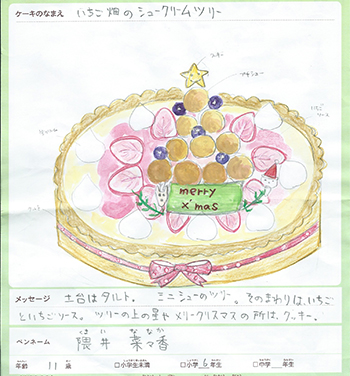 ケーキのなまえ いちご畑のシュークリームツリー
クッキー
プチシュー
いちごソース
merry
x'mas
メッセージ 土台はタルト。 ミニシューのツリー。そのまわりは、いちご
といちごソース。 ツリーの上の星や メリークリスマスの所は、クッキー。
ペンネーム 隈井 菜々香
くまい ななか
年齢 11 歳 □小学生未満 □小学 6 年生 □中学 年生